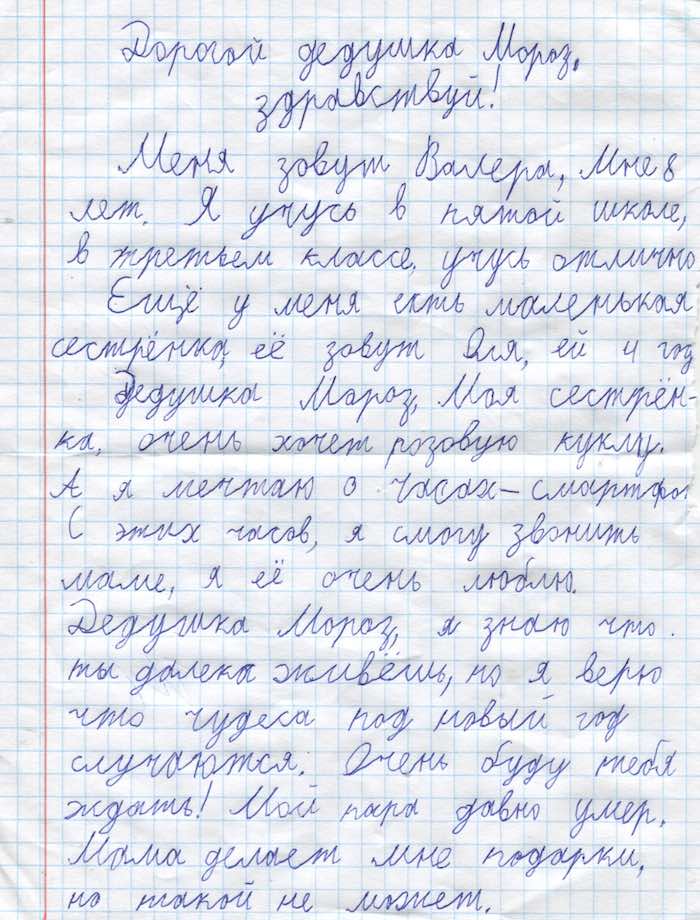 Дорогой дедушка Мороз,
здравствуй!
Меня зовут Валера, Мне 8
лет. Я учусь в пятой школе,
в третьем классе. учусь отлично
Ещё у меня есть маленькая
сестрёнка, её зовут Оля, ей 4 год
Дедушка Мороз, Моя сестрён-
ка, очень хочет розовую куклу.
А я мечтаю о часах-смартфо
С этих часов, я смогу звонить
маме, я её очень люблю.
Дедушка Мороз, я знаю что
ты далека живёшь, но я верю
что чудеса под новый год
случаются. Очень буду тебя
ждать! Мой папа давно умер.
Мама делает мне подарки,
но такой не может.